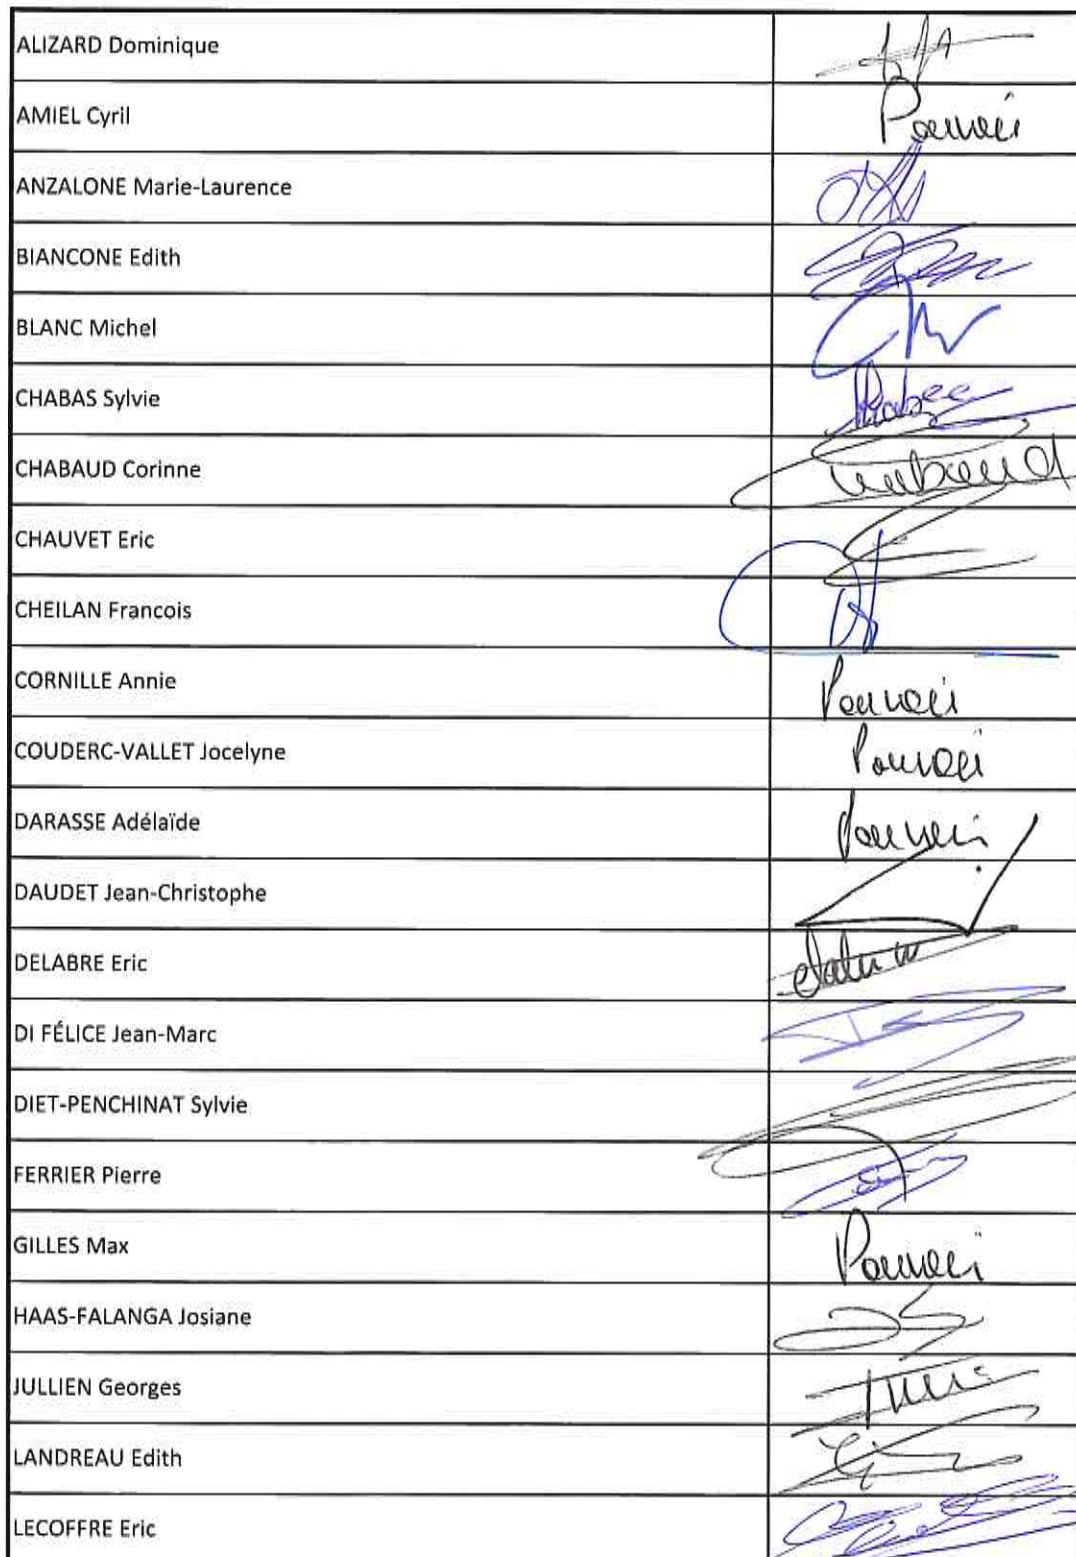 ALIZARD Dominique
AMIEL Cyril Pouvoir
ANZALONE Marie-Laurence
BIANCONE Edith
BLANC Michel
CHABAS Sylvie
CHABAUD Corinne
CHAUVET Eric
CHEILAN Francois
CORNILLE Annie Pouvoir
COUDERC-VALLET Jocelyne Pouvoir
DARASSE Adélaïde Pouvoir
DAUDET Jean-Christophe
DELABRE Eric
DI FÉLICE Jean-Marc
DIET-PENCHINAT Sylvie
FERRIER Pierre
GILLES Max Pouvoir
HAAS-FALANGA Josiane
JULLIEN Georges
LANDREAU Edith
LECOFFRE Eric